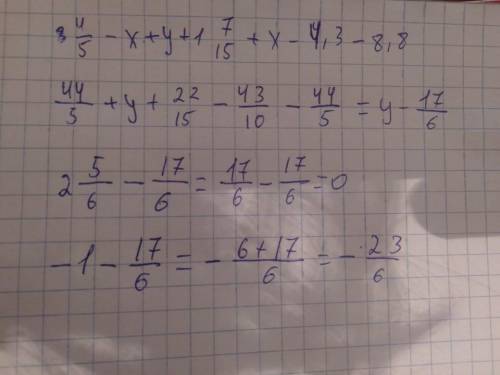 8 4/5 - x + y + 1 7/15 + x - 4,3 - 8,8
44/5 + y + 22/15 - 43/10 - 44/5 = y - 17/6
2 5/6 - 17/6 = 17/6 - 17/6 = 0
-1 - 17/6 = - 6+17/6 = - 23/6